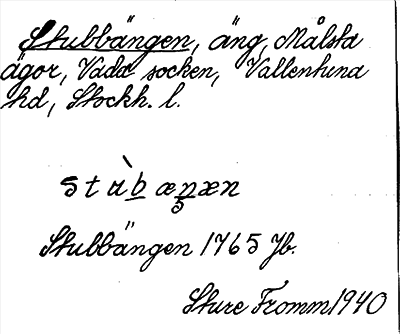 Stubbängen, äng, Målsta
ägor, Vada socken, Vallentuna
hd, Stockh. l.
stùb æŋæn
Stubbängen 1765 Jb.
Sture Fromm 1940